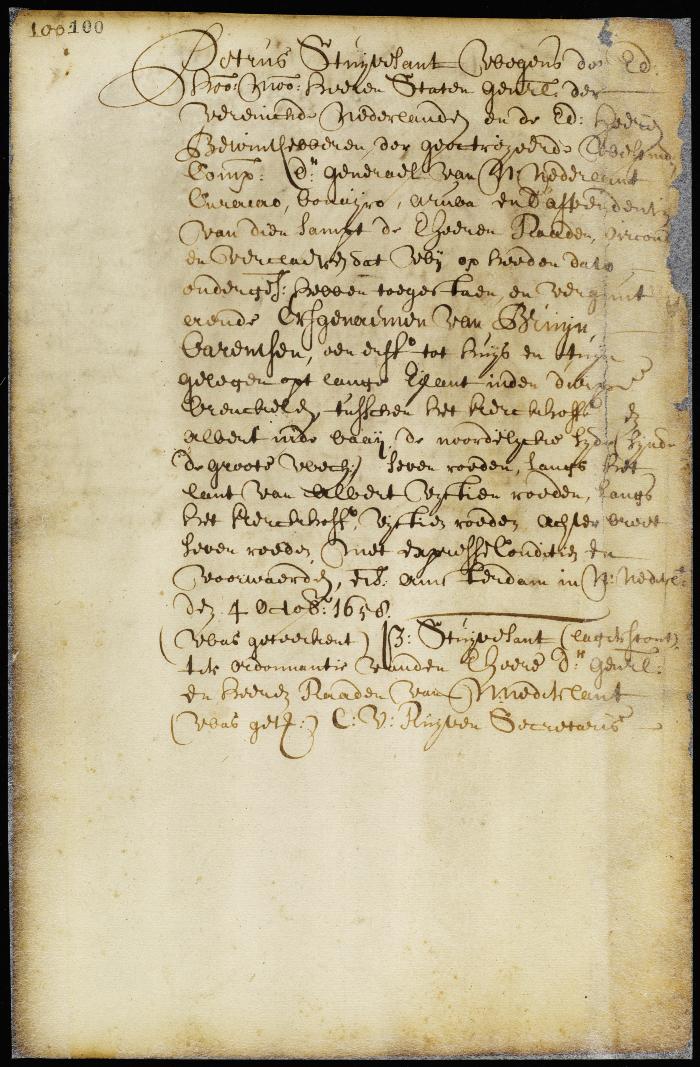 100 100
Petrus Stuijvesant Wegens de Ed.
Hoo: Moo: heeren Staten Genrl. der
Vereenichde Nederlanden en de Ed: heeren
Bewinthebberen der geoctroijeerde Westind
Comp: Dr. generael van N: Nederlant
Curacao, bonayro, Aruba en D'appendentie
van dien Sampt de Heeren Raaden, oircond
en verclaeren dat Wij op heeden dato
ondergesz: hebben toegestaen, en vergunt
aende Erfgenaemen Van Bruijn
barentsen, een erff tot huijs en thuyn
gelegen opt lange Eijlant inden dorpe
breuckelen, tusschen het kerckhoff en
Albert inde baaij, de noordelycke Syde Synde
de groote Wech, Seven roeden, langs het
lant van Albert Vyftien roeden, langs
het kerckhoff, Vyftien roeden achter breet
Seven roeden, Met expresse Conditien En
Voorwaerden, etc: Amsterdam in N: Nederl:
den 4 Octob: 1658.
(Was geteeckent) P: Stuijvesant (lager stont)
ter ordonnantie Vanden Heere Dr. Genrl:
en heeren Raaden Van N Nederlant
(Was get:) C: V: Ruijven Secretaris